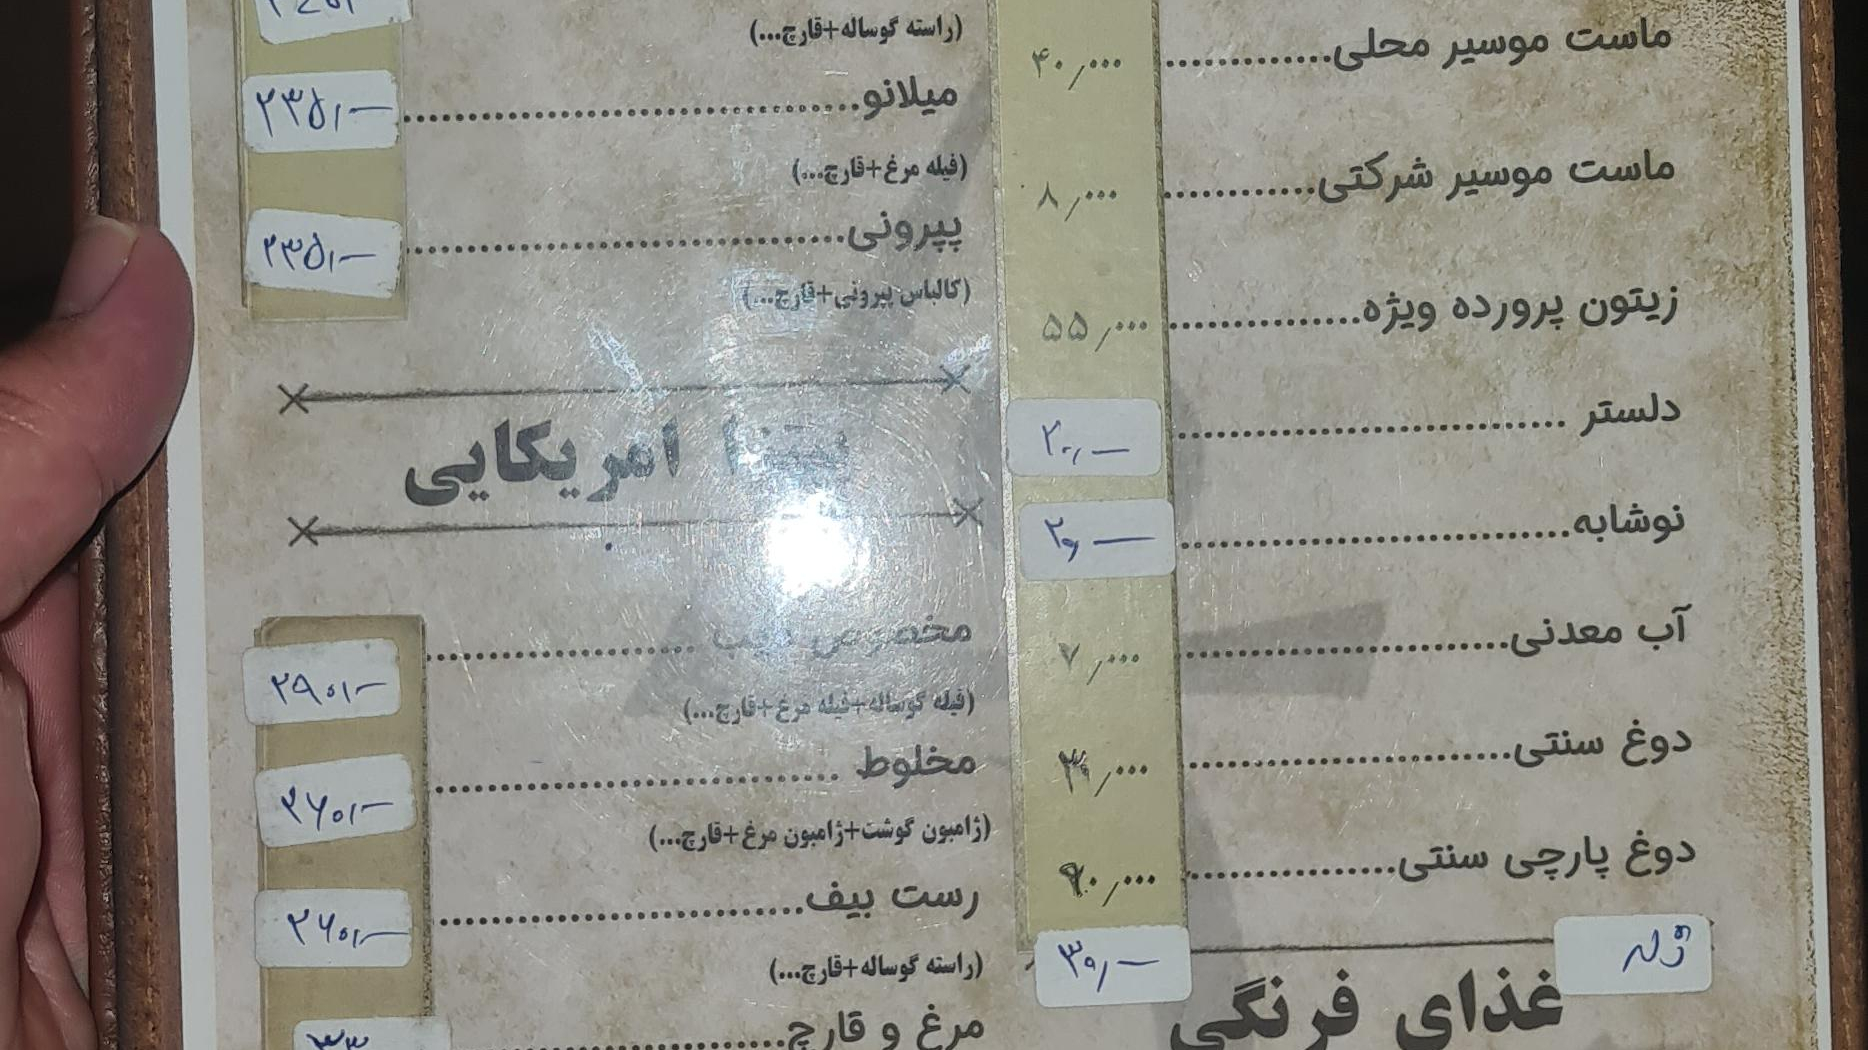 ماست موسیر محلی............. ۴۰٫۰۰۰
ماست موسیر شرکتی............ ۸٫۰۰۰
زیتون پرورده ویژه............... ۵۵٫۰۰۰
دلستر .............................. ۲۰٫—
نوشابه............................... ۲۰٫—
آب معدنی......................... ۷٫۰۰۰
دوغ سنتی......................... ۳۰٫۰۰۰
دوغ پارچی سنتی................ ۹۰٫۰۰۰
ژله ۳۰٫—
غذای فرنگی
(راسته گوساله+قارچ...)
میلانو.................................... ۲۳۵٫—
(فیله مرغ+قارچ...)
پپرونی................................... ۲۳۵٫—
(کالباس پپرونی+قارچ...)
پیتزا امریکایی
مخصوص ....................... ۲۹۰٫—
(فیله گوساله+فیله مرغ+قارچ...)
مخلوط ................................ ۲۶۰٫—
(ژامبون گوشت+ژامبون مرغ+قارچ...)
رست بیف............................. ۲۶۰٫—
(راسته گوساله+قارچ...)
مرغ و قارچ.............................